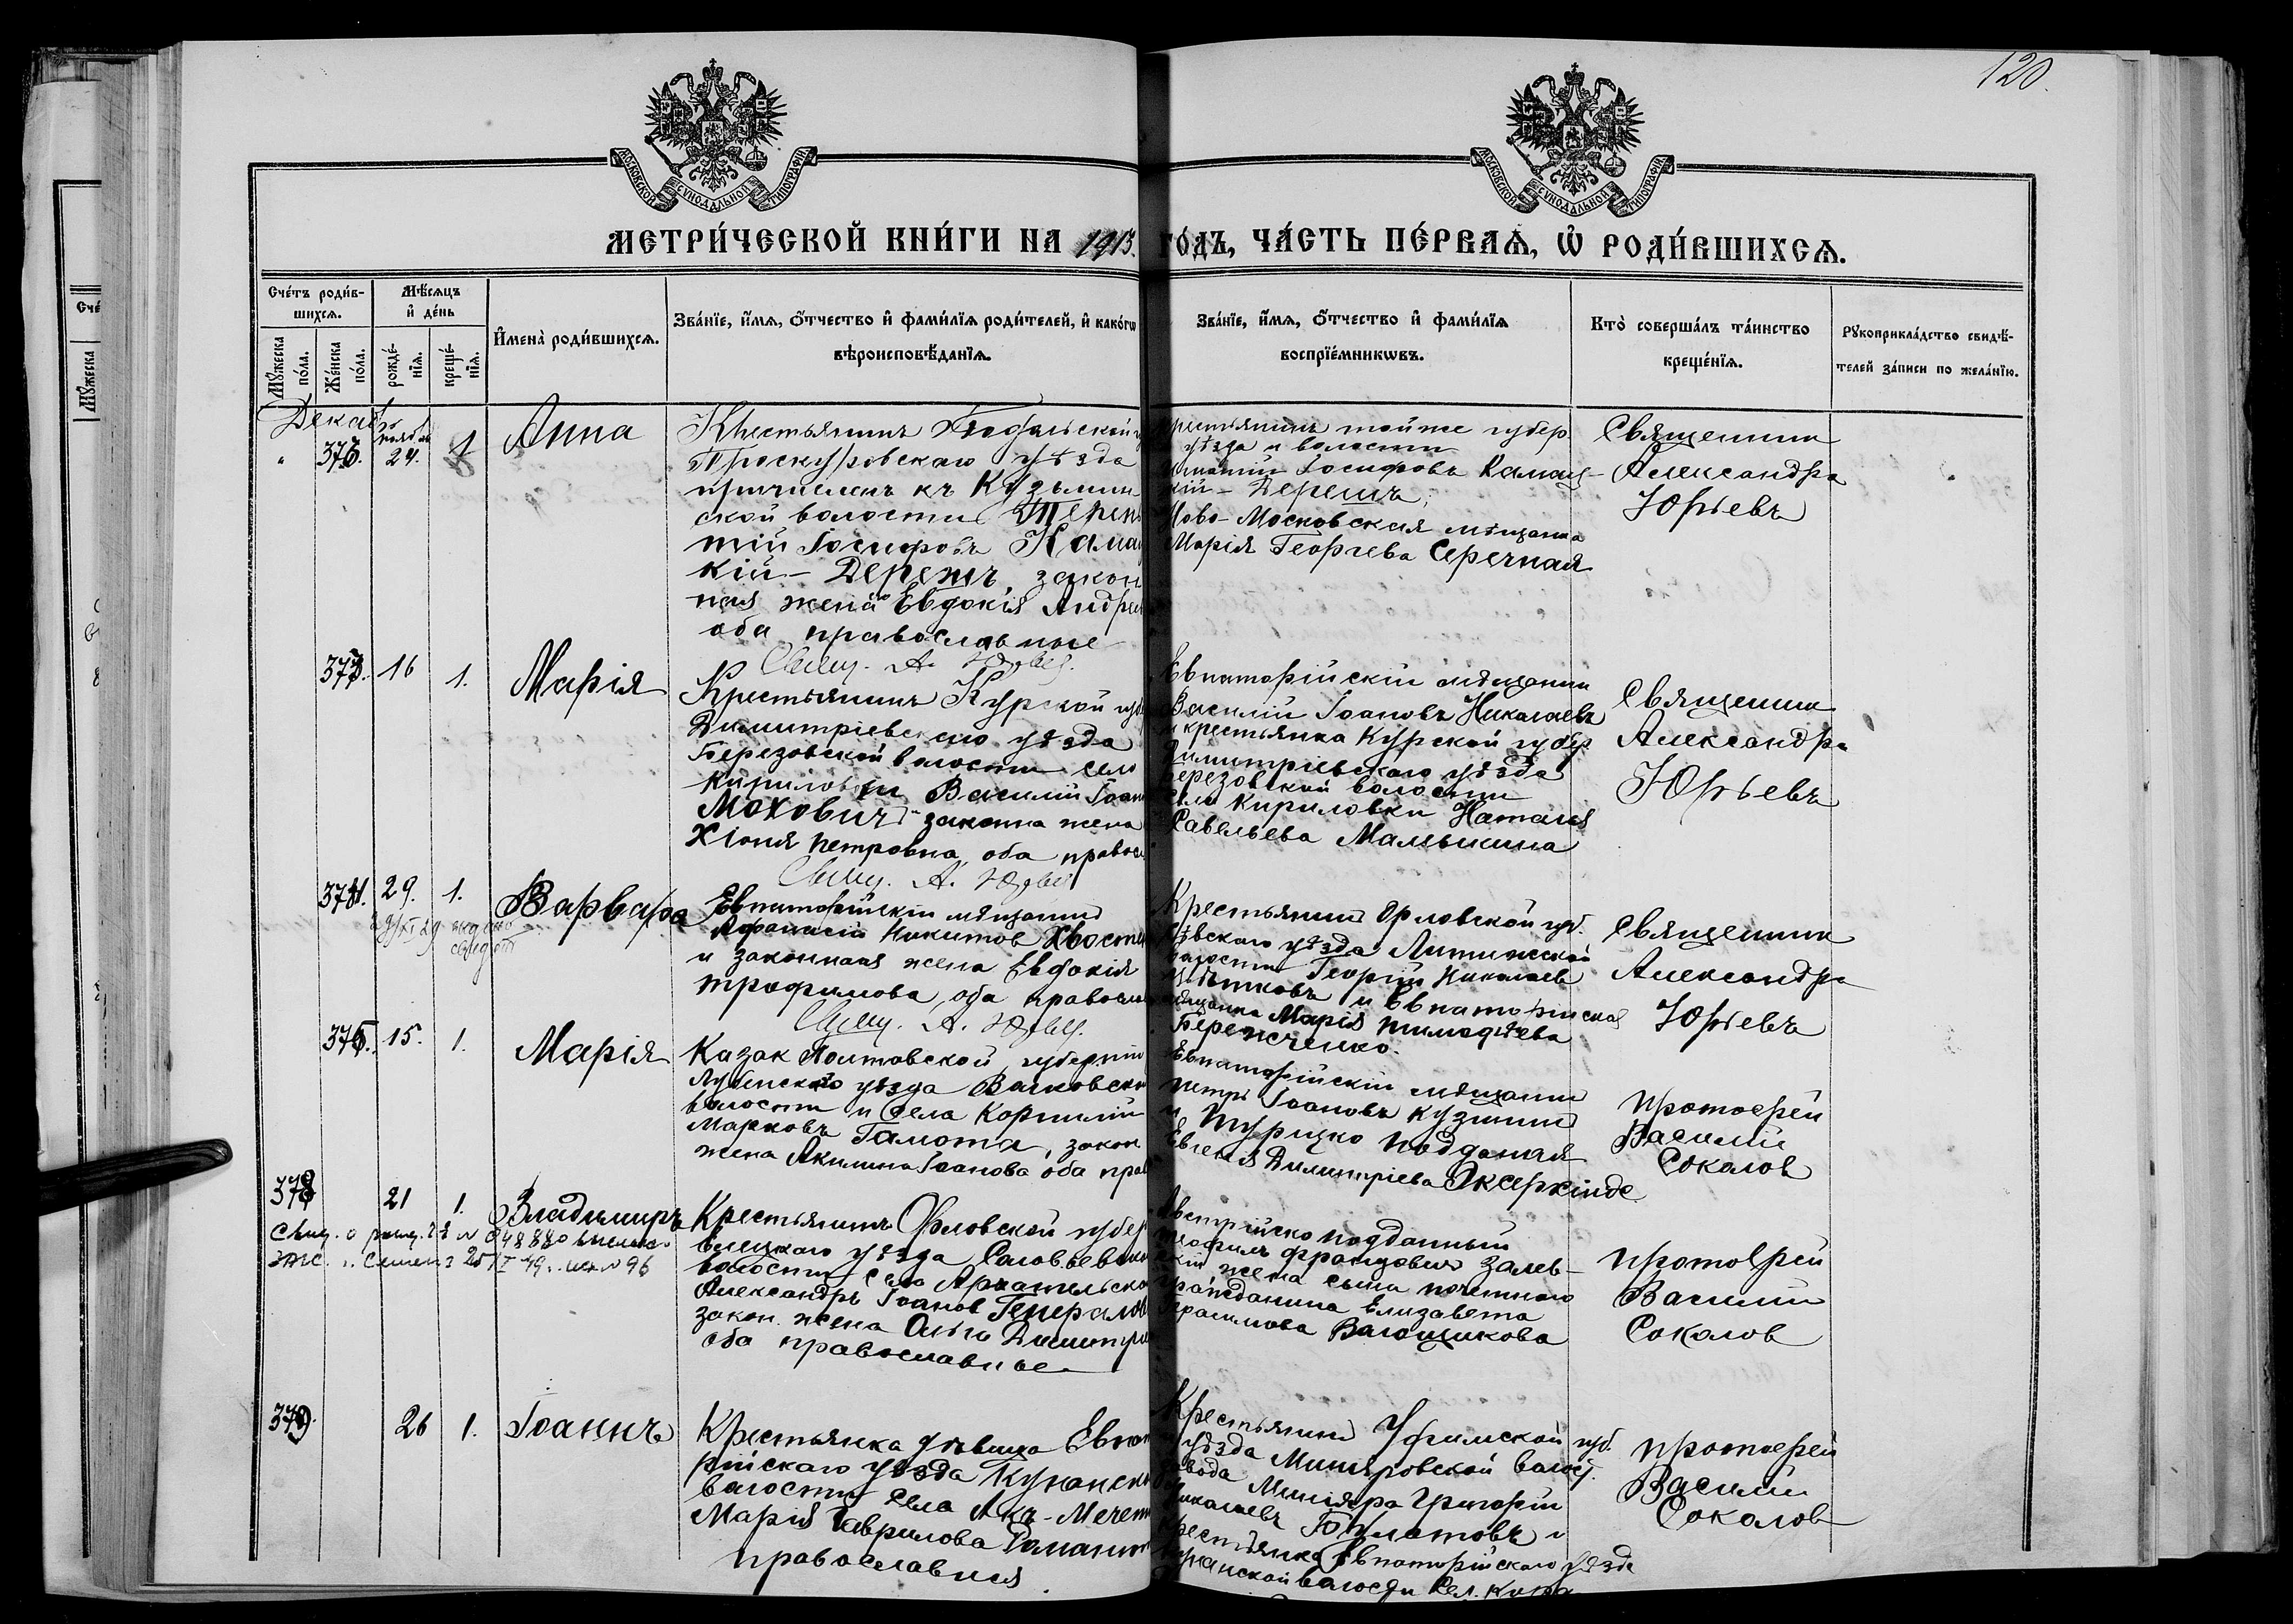 120.
МОСКОВСКОЙ СѴНОДАЛЬНОЙ ТИПОГРАФІИ
МОСКОВСКОЙ СѴНОДАЛЬНОЙ ТИПОГРАФІИ
МЕТРИ́ЧЕСКОЙ КНИ́ГИ НА 1913. ГО́ДЪ, ЧА́СТЬ ПЕ́РВАѦ, Ѡ҆ РОДИ́ВШИХСѦ.
Сче́тъ роди́в-
шихсѧ.
Мѣ́сѧцъ
и҆ де́нь
Мꙋ́жеска
по́ла.
Же́нска
по́ла.
рожде́-
нїѧ.
креще́-
нїѧ.
И҆мена̀ роди́вшихсѧ.
Зва́нїе, и҆́мѧ, ѻ҆́тчество и҆ фами́лїѧ роди́телей, и҆ како́гѡ
вѣроисповѣ́данїѧ.
Зва́нїе, и҆́мѧ, ѻ҆́тчество и҆ фами́лїѧ
воспрїе́мникѡвъ.
Кто̀ соверша́лъ та́инство
креще́нїѧ.
Рꙋкоприкла́дство свидѣ́-
телей за́писи по жела́нїю.
Декаб
376. 24. 1
Анна
Крестьянинъ Подольской
Проскуровскаго уѣзда
причисленъ къ Кузьмин
ской волости Терен
тій Іосифовъ Кама
кій - Дерешъ, закон
ная жена Евдокія Андре
оба православные
Свящ. А. Юрьев.
рестьянинъ тойже губер.
уѣзда и волости
Іосифовъ Камац-
кій - Дерешъ,
Ново-Московская мѣщанка
Марія Георгева Серечная
Священник
Александръ
Юрьевъ
377. 16 1.
Марія
Крестьянинъ Курской губ
Димитріевскаго уѣзда
Березовской волости село
Кириловки Василій Іоан
Моховичъ законна жена
Хіонія Петровна, оба правос
Свящ. А. Юрьев
Евпаторійскій мѣщанин
Василій Іоановъ Николаевъ
и крестьянка Курской губер
Димитріевскаго уѣзда
Березовской волости
села Кириловки Наталія
Савельева Малыхина
Священник
Александръ
Юрьевъ
29. 1.
Варвара
Евпаторійскій мѣщанин
Афанасій Никитов Хвосте
и законная жена Евдокія
Трофимова, оба правосла
Свящ. А. Юрьев.
Крестьянин Орловской губ.
вскаго уѣзда Литижской
волости Георгій Николаев
и Евпаторійская
мѣщанка Марія Тимофѣева
Бережченко.
Священник
Александръ
Юрьевъ
15. 1.
Марія
Казак Полтавской губерніи
Лубенскаго уѣзда
волости и села Корнилій
Марковъ Гамота, закон
жена Акилина Іоанова оба прав
Евпаторійскій мѣщанин
Петръ Іоановъ Кузмин
и Турецко подданая
Евгенія Димитріева
Протоерей
Василій
Соколов
378 21 1.
Владимиръ
96
Крестьянинъ Орловской губер
Елецкаго уѣзда Соловьевской
волости село Архангельско
Александръ Іоанов Генералов
закон. жена Ольга Димитр
оба православные
Австрійско подданный
Теофилъ Францович Залев-
скій жена сына почетнаго
гражданина Елизавета
Герасимова Валощикова
Протоерей
Василий
Соколов
379. 26 1.
Іоаннъ
Крестьянка дѣвица Евпат
рійскаго уѣзда
волости села Акъ-Мечет
Марія Гаврилова Романо
православная
Крестьянин Уфимской губ.
и уѣзда Миньяровской волост.
завода Миньяра Григорій
Николаевъ Булатовъ и
крестьянка Евпаторійскаго уѣзда
волости сел.
Протоерей
Василий
Соколов